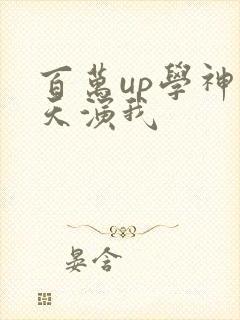 百萬up學神
天演我
晏含